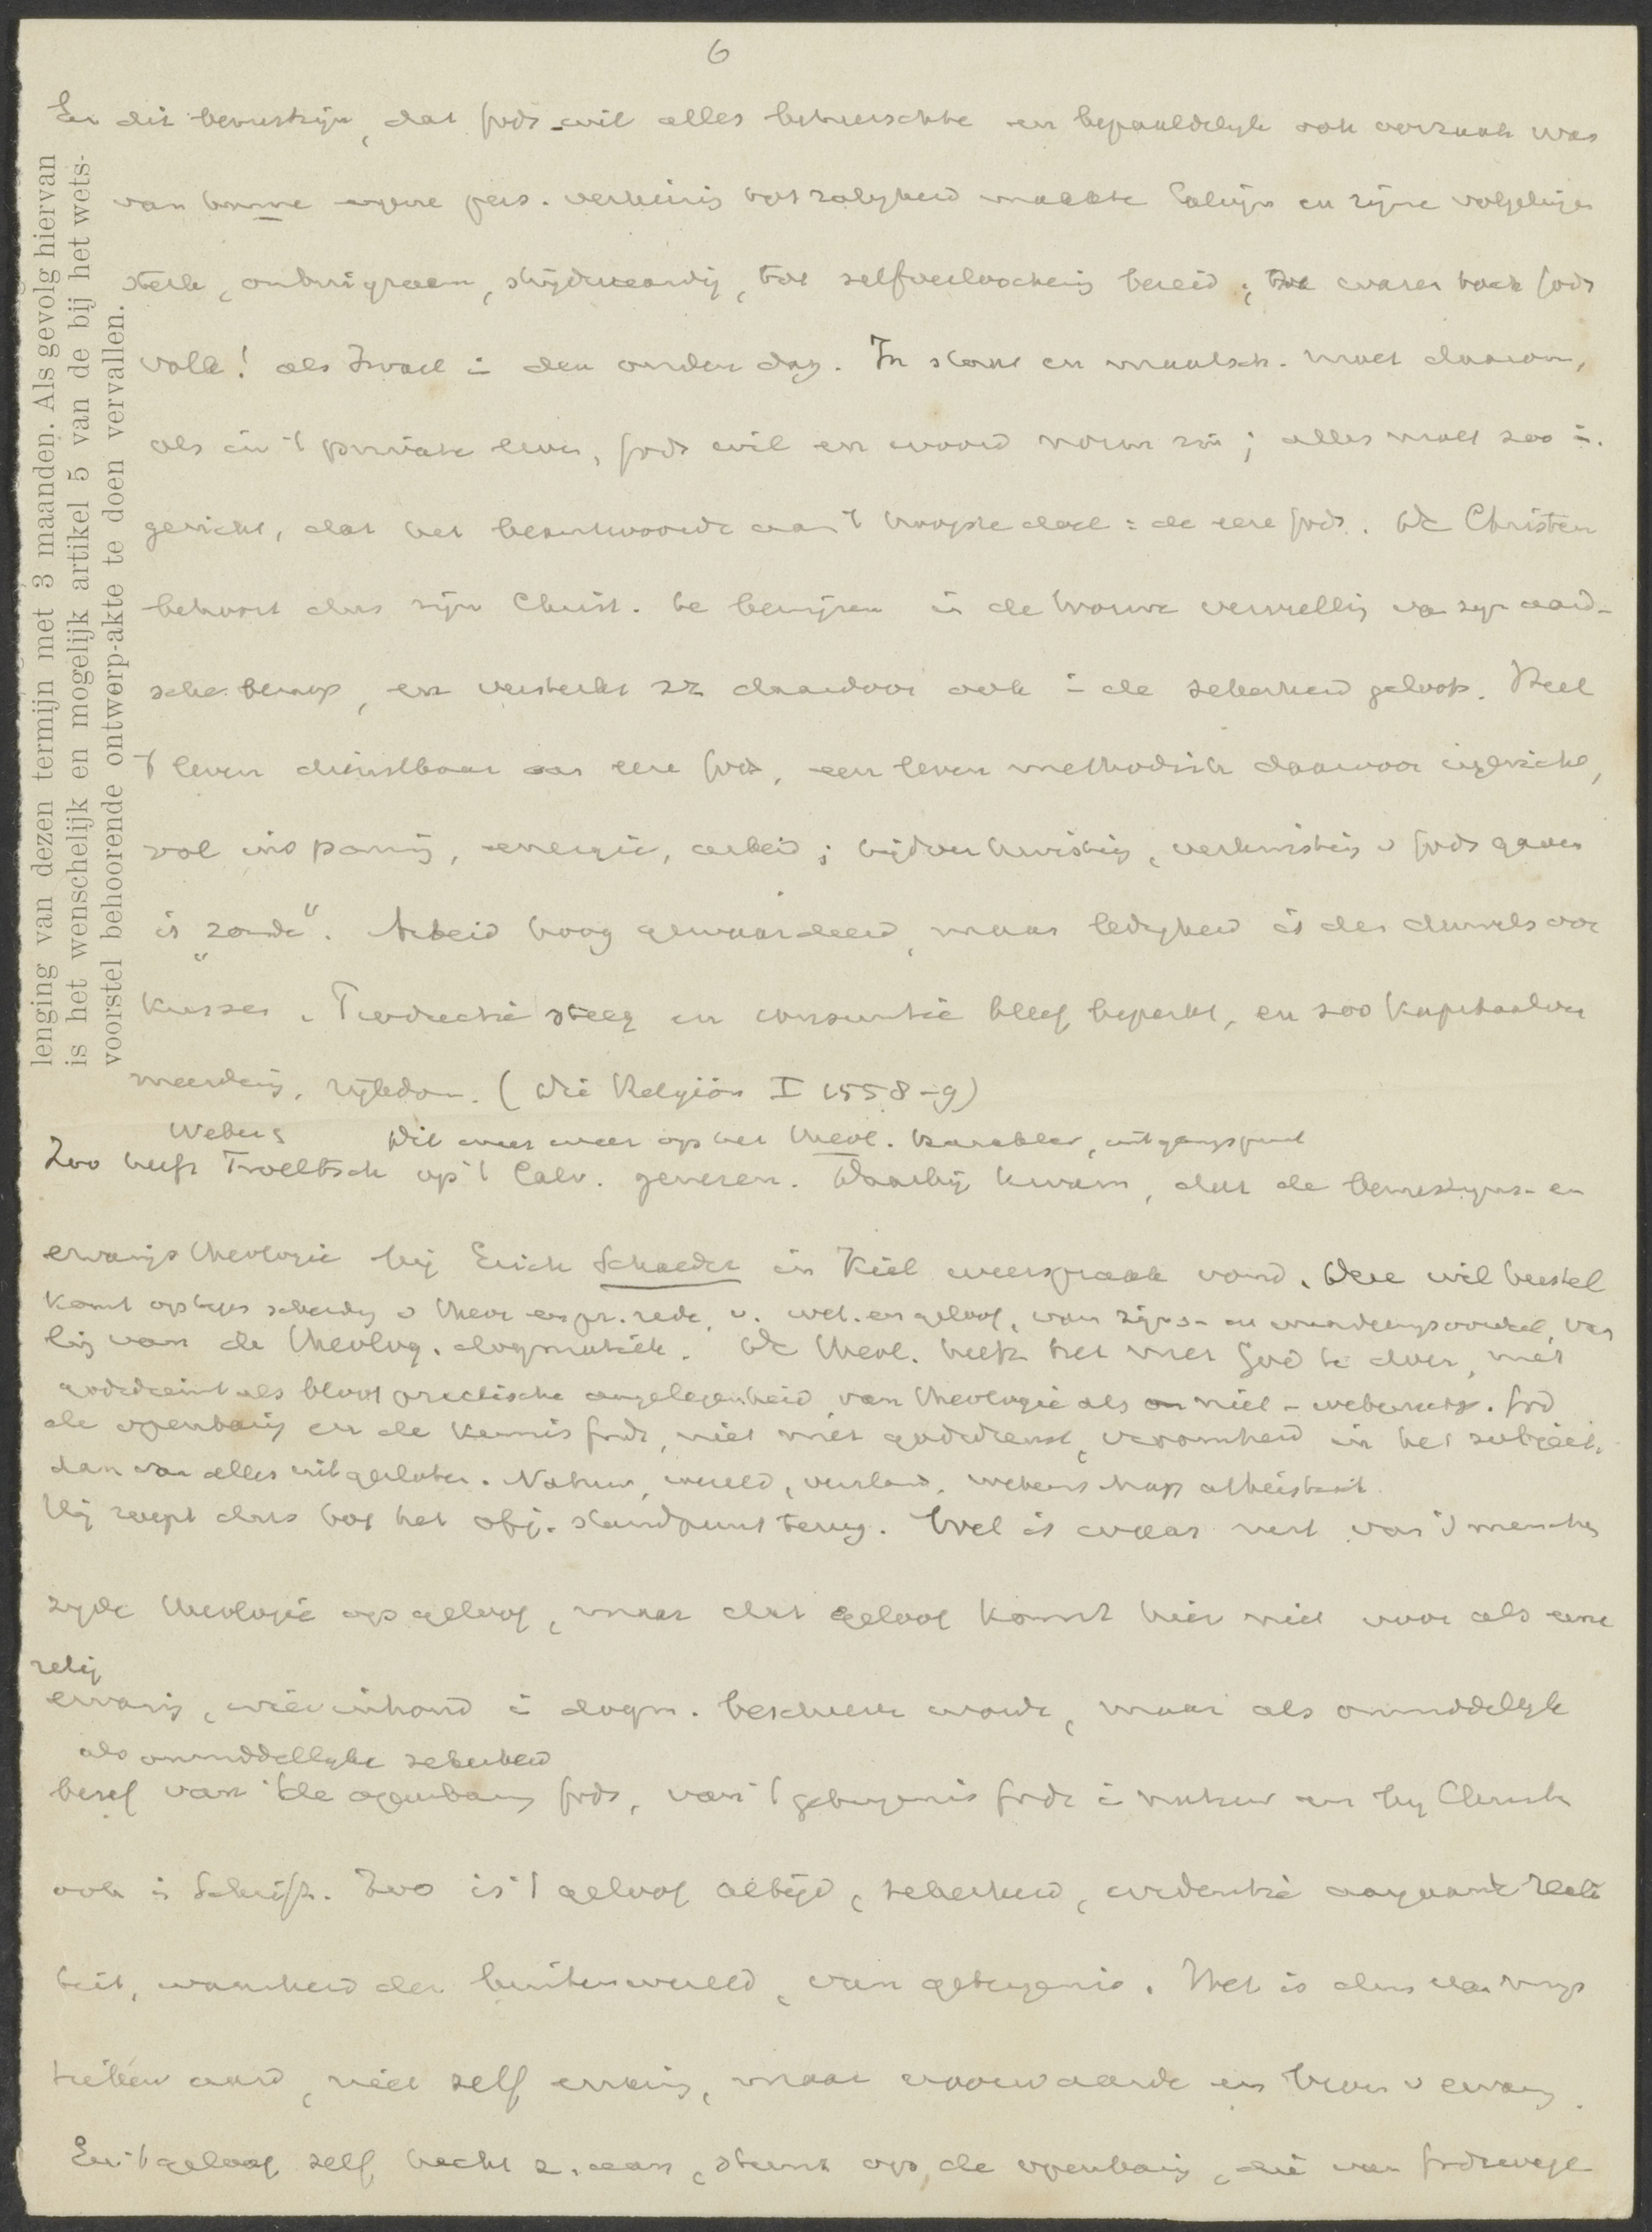 6
En dit bewustzijn, dat Gods wil alles beheerschte en bepaaldelijk ook oorzaak was
van hunne eigene pers. verkiezing tot zaligheid maakte Calvijn en zijne volgelingen
sterk, onbuigzaam, strijdvaardig, tot zelfverloochening bereid; zoo waren toch Gods
volk! als Israel in den ouden dag. In staat en maatsch. moet daarom,
als in 't private leven, Gods wil en woord norm zijn; alles moet zoo in.
gericht, dat het beantwoorde aan 't hoogste doel: de eere Gods. De Christen
behoort dus zijn Christ. te bewijzen in de trouwe vervulling van zijn aard-
sche beroep, en versterkt zz daardoor ook in de zekerheid geloofs. Heel
't leven dienstbaar aan eere Gods, een leven methodisch daarvoor ingericht,
vol inspannig, energie, arbeid; tijdverkwisting, verkwisting v Gods gaven
is "zonde". Arbeid hoog gewaardeerd, maar ledigheid is des duivels oor
kussen. Productie steeg en consumtie bleef beperkt, en zoo kapitaalver
meerdering, rijkdom. (Die Religion I 1558-9)
Webers Dit meer weer op het theol. karakter, uitgangspunt
Zoo heeft Troeltsch op 't Calv. gewezen. Daarbij kwam, dat de bewustzijns- en
ervarings theologie bij Erich Schaeder in Kiel weerspraak vond. Deze wil herstel
komt op tegen scheiding v theor en pr. rede, v. wet. en geloof, van zijns- en waardeeringsoordeel, van
ling van de theolog. dogmatiek. De theol. heeft het met God te doen, met
godsdienst als bloot practische aangelegenheid, van theologie als niet-wetensch. God
de openbaring en de kennis Gods, niet met godsdienst, vroomheid in het subject.
dan van alles uitgesloten. Natuur, wereld, verstand, wetenschap atheistisch
Hij roept dus tot het obj. standpunt terug. Wel is waar rust van 's menschen
zijde theologie op geloof, maar dat geloof komt hier niet voor als eene
relig
ervaring, wier inhoud in dogm. beschreven wordt, maar als onmiddelijk
als onmiddellijke zekerheid
besef van de openbaring Gods, van 't getuigenis Gods in natuur en bij Christus
ook in Schrift. Zoo is 't geloof altijd, zekerheid, evidentie aangaande reali
teit, waarheid der buitenwereld, van getuigenis. Het is dus van
aard, niet zelf ervaring, maar voorwaarde en bron v ervaring.
En 't geloof zelf hecht z. aan, steunt op, de openbaring, die van Godswege
lenging van dezen termijn met 3 maanden. Als gevolg hiervan
is het wenschelijk en mogelijk artikel 5 van de bij het wets-
voorstel behoorende ontwerp-akte te doen vervallen.